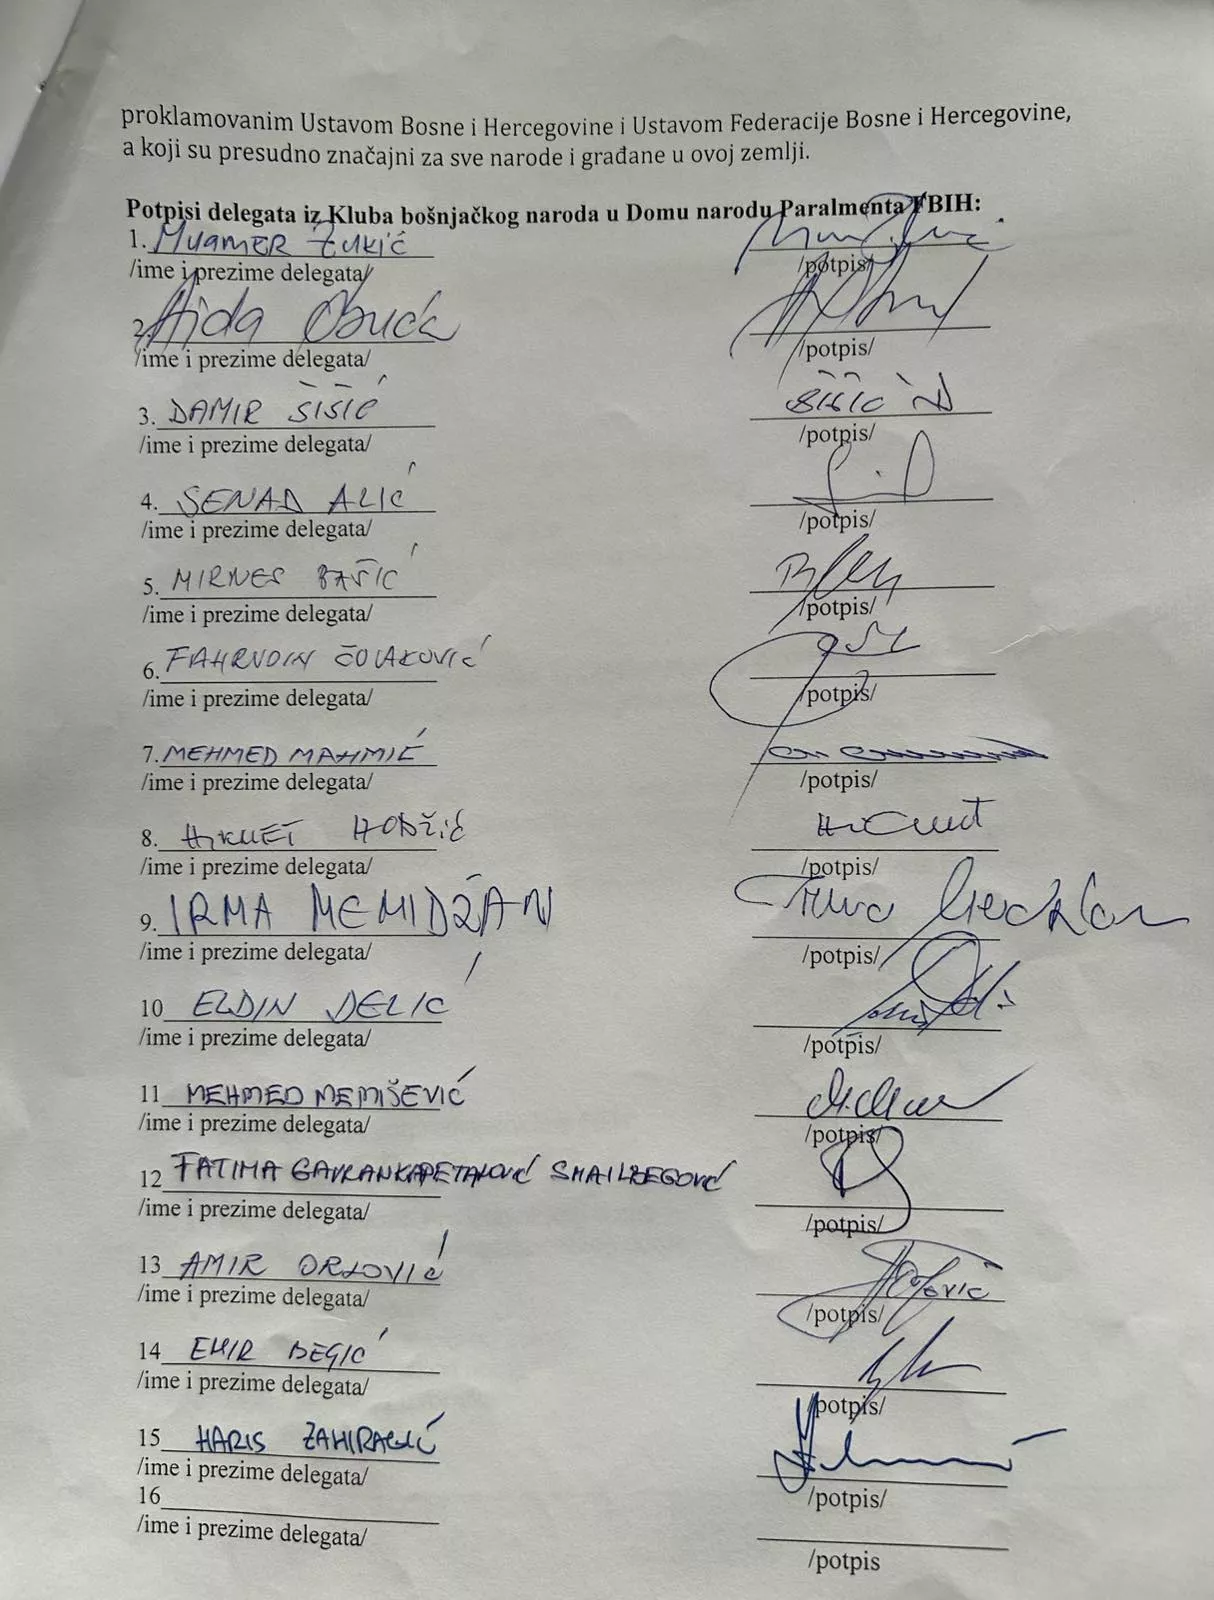 proklamovanim Ustavom Bosne i Hercegovine i Ustavom Federacije Bosne i Hercegovine,
a koji su presudno značajni za sve narode i građane u ovoj zemlji.
Potpisi delegata iz Kluba bošnjačkog naroda u Domu narodu Paralmenta FBIH:
1. MUAMER ZUKIĆ
/ime i prezime delegata/ /potpis/
2. Aida Obuća
/ime i prezime delegata/ /potpis/
3. DAMIR ŠIŠIĆ ŠIŠIĆ D
/ime i prezime delegata/ /potpis/
4. SENAD ALIĆ
/ime i prezime delegata/ /potpis/
5. MIRNES BAŠIĆ
/ime i prezime delegata/ /potpis/
6. FAHRUDIN ČOLAKOVIĆ
/ime i prezime delegata/ /potpis/
7. MEHMED MAHMIĆ
/ime i prezime delegata/ /potpis/
8. HIKMET HODŽIĆ
/ime i prezime delegata/ /potpis/
9. IRMA MEMIDŽAN
/ime i prezime delegata/ /potpis/
10 ELDIN DELIĆ
/ime i prezime delegata/ /potpis/
11 MEHMED MEMIŠEVIĆ
/ime i prezime delegata/ /potpis/
12 FATIMA GAVRANKAPETANOVIĆ SMAILBEGOVIĆ
/ime i prezime delegata/ /potpis/
13 AMIR ORLOVIĆ
/ime i prezime delegata/ /potpis/
14 EMIR BEGIĆ
/ime i prezime delegata/ /potpis/
15 HARIS ZAHIRAGIĆ
/ime i prezime delegata/ /potpis/
16
/ime i prezime delegata/ /potpis